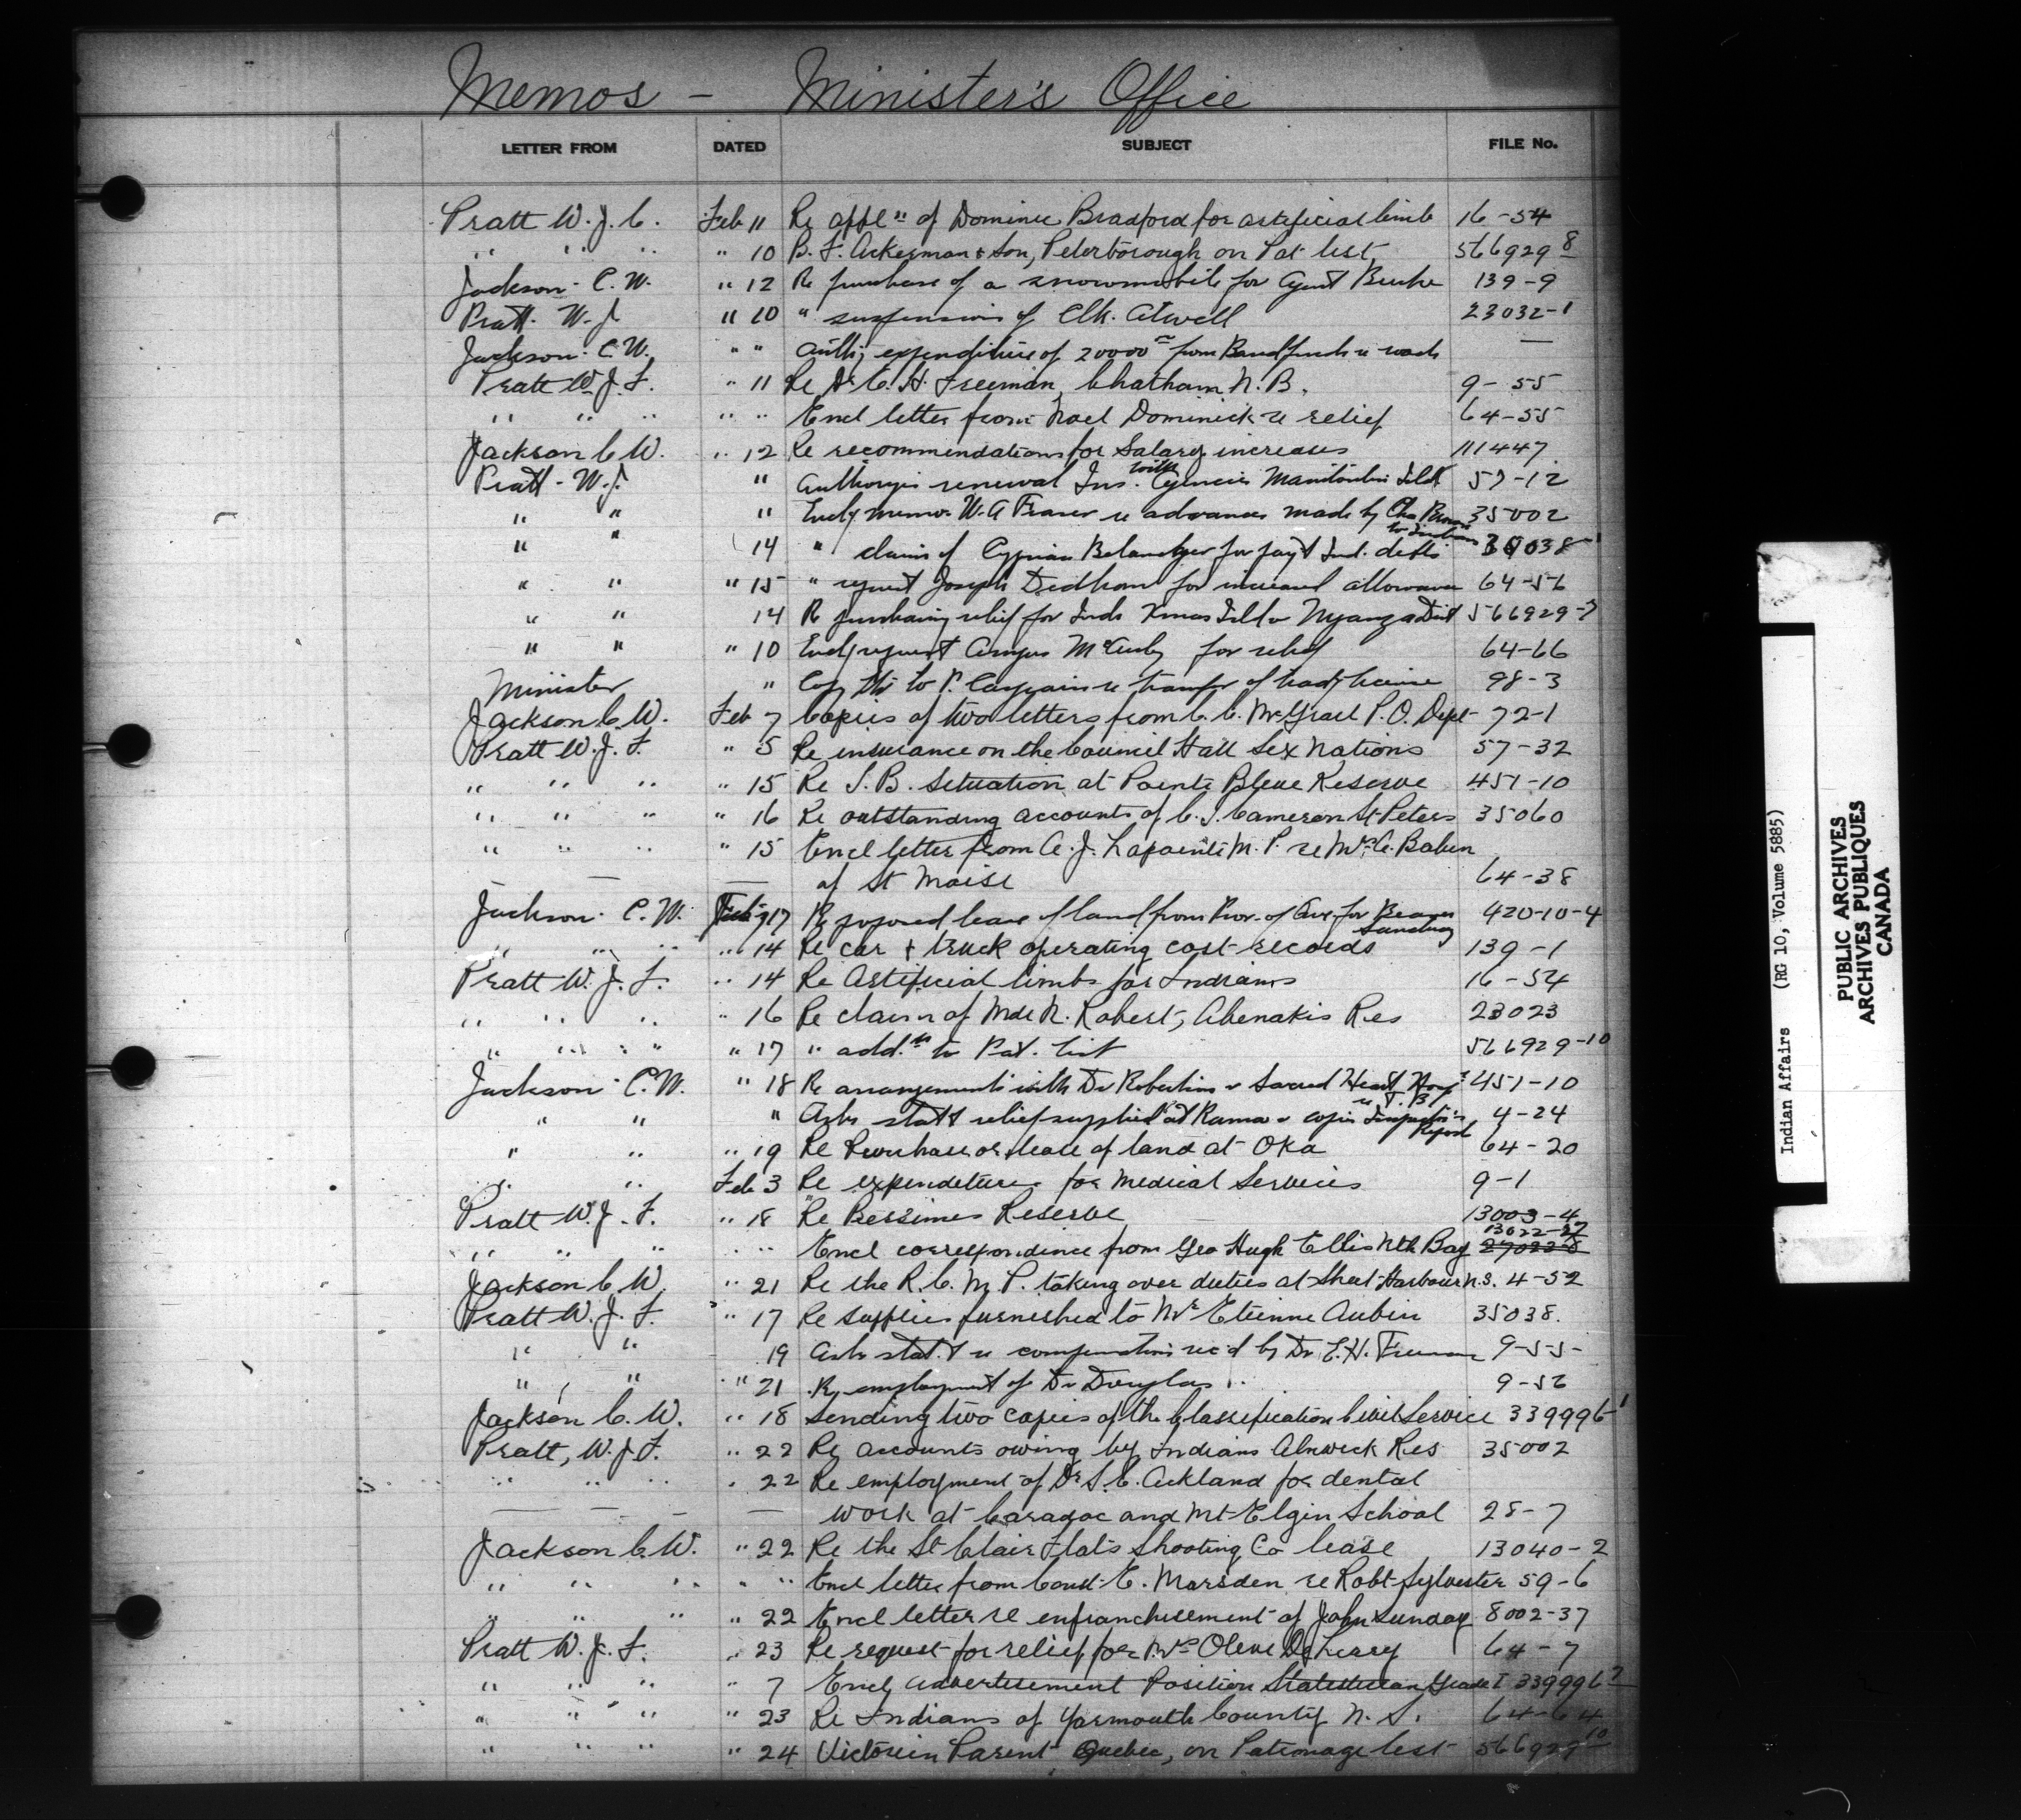 Memos - Minister's Office
LETTER FROM DATED SUBJECT FILE No.
Pratt W. J. C. Feb 11 Re appln of Dominic Bradford for artificial limb 16-54
" " " " 10 B. F. Ackerman & Son, Peterborough on Pat list 566929 8
Jackson - C. W. " 12 Re purchase of a snowmobile for Agent Burke 139-9
Pratt - W. J. " 10 " suspension of Clk. Atwell 23032-1
Jackson - C. W. " " Authy expenditure of 20000 00 from Band funds re roads —
Pratt W. J. F. " 11 Re Dr. C. H. Freeman, Chatham N. B. 9-55
" " " " " Encl letter from Noel Dominick re relief 64-55
Jackson C. W. " 12 Re recommendations for Salary increases 111447
Pratt - W. J. " Authorizes renewal Ins. with Agencies Manitoulin Isld 57-12
" " " Encl'g memo W. A Fraser re advances made by Chas to Indians 35002
" " 14 " claim of Cyprien Belanger for pay't Ind. debts
" " " 15 " request Joseph Dedham for increased allowance 64-56
" " 14 Re purchasing relief for Inds Xmas Isld & Nyanza Dist 566929-7
" " " 10 Encl'g request Angus for relief 64-66
Minister " Copy ltr to P. re transfer of trad'g license 98-3
Jackson C. W. Feb 7 Copies of two letters from C. C. McGrail P. O. Dept 72-1
Pratt W. J. F. " 5 Re insurance on the Council Hall Six Nations 57-32
" " " " 15 Re T. B. situation at Pointe Bleue Reserve 451-10
" " " " 16 Re outstanding accounts of C. J. Cameron St Peters 35060
" " " " 15 Encl letter from A. J. Lapointe M. P. re Mrs. A. Baben
— — — of St Moise 64-38
Jackson - C. W. Feb 17 Re proposed lease of land from Prov. of Que. for Beaver Sanctuary 420-10-4
" " " " 14 Re car & truck operating cost records 139-1
Pratt W. J. F. " 14 Re Artificial limbs for Indians 16-54
" " " " 16 Re claim of Mde N. Robert, Abenakis Res 23023
" " " " 17 " add.n to Pat. list 566929-10
Jackson - C. W. " 18 Re arrangements with Dr Robertson & Sacred Heart Hosp. re T. B. 451-10
" " " Asks stat't relief supplied at Rama & copies Inspector's Report 4-24
" " " 19 Re Purchase or lease of land at Oka 64-20
" " Feb 3 Re expenditures for Medical Services 9-1
Pratt W. J. F. " 18 Re Bersimis Reserve 13003-4
" " " " " Encl correspondence from Geo Hugh Ellis Nth Bay 13022-27
Jackson C. W. " 21 Re the R. C. M. P. taking over duties at Sheet Harbour N.S. 4-52
Pratt W. J. F. " 17 Re supplies furnished to Mr Etienne Aubin 35038.
" " 19 Asks stat't re compensation rec'd by Dr C. H. Freeman 9-55-
" " " 21 Re employment of Dr Douglas 9-56
Jackson C. W. " 18 Sending two copies of the Classification Civil Service 339996-1
Pratt, W. J. F. " 22 Re accounts owing by Indians Alnwick Res 35002
" " " " 22 Re employment of Dr. S. C. Ackland for dental
— — — — work at Caradoc and Mt-Elgin School 28-7
Jackson C. W. " 22 Re the St Clair Flats Shooting Co lease 13040-2
" " " " " Encl letter from Const. E. Marsden re Robt Sylvester 59-6
" " " " 22 Encl letter re enfranchisement of John Sunday 8002-37
Pratt W. J. F. " 23 Re request for relief for Mrs Olive 64-7
" " " " 7 Encl'g advertisement Position Statistician Grade I 339996 2
" " " " 23 Re Indians of Yarmouth County N. S. 64-64
" " " " 24 Victorin Parent Quebec, on Patronage list 566929 10
Indian Affairs (RG 10, Volume 5885)
PUBLIC ARCHIVES
ARCHIVES PUBLIQUES
CANADA